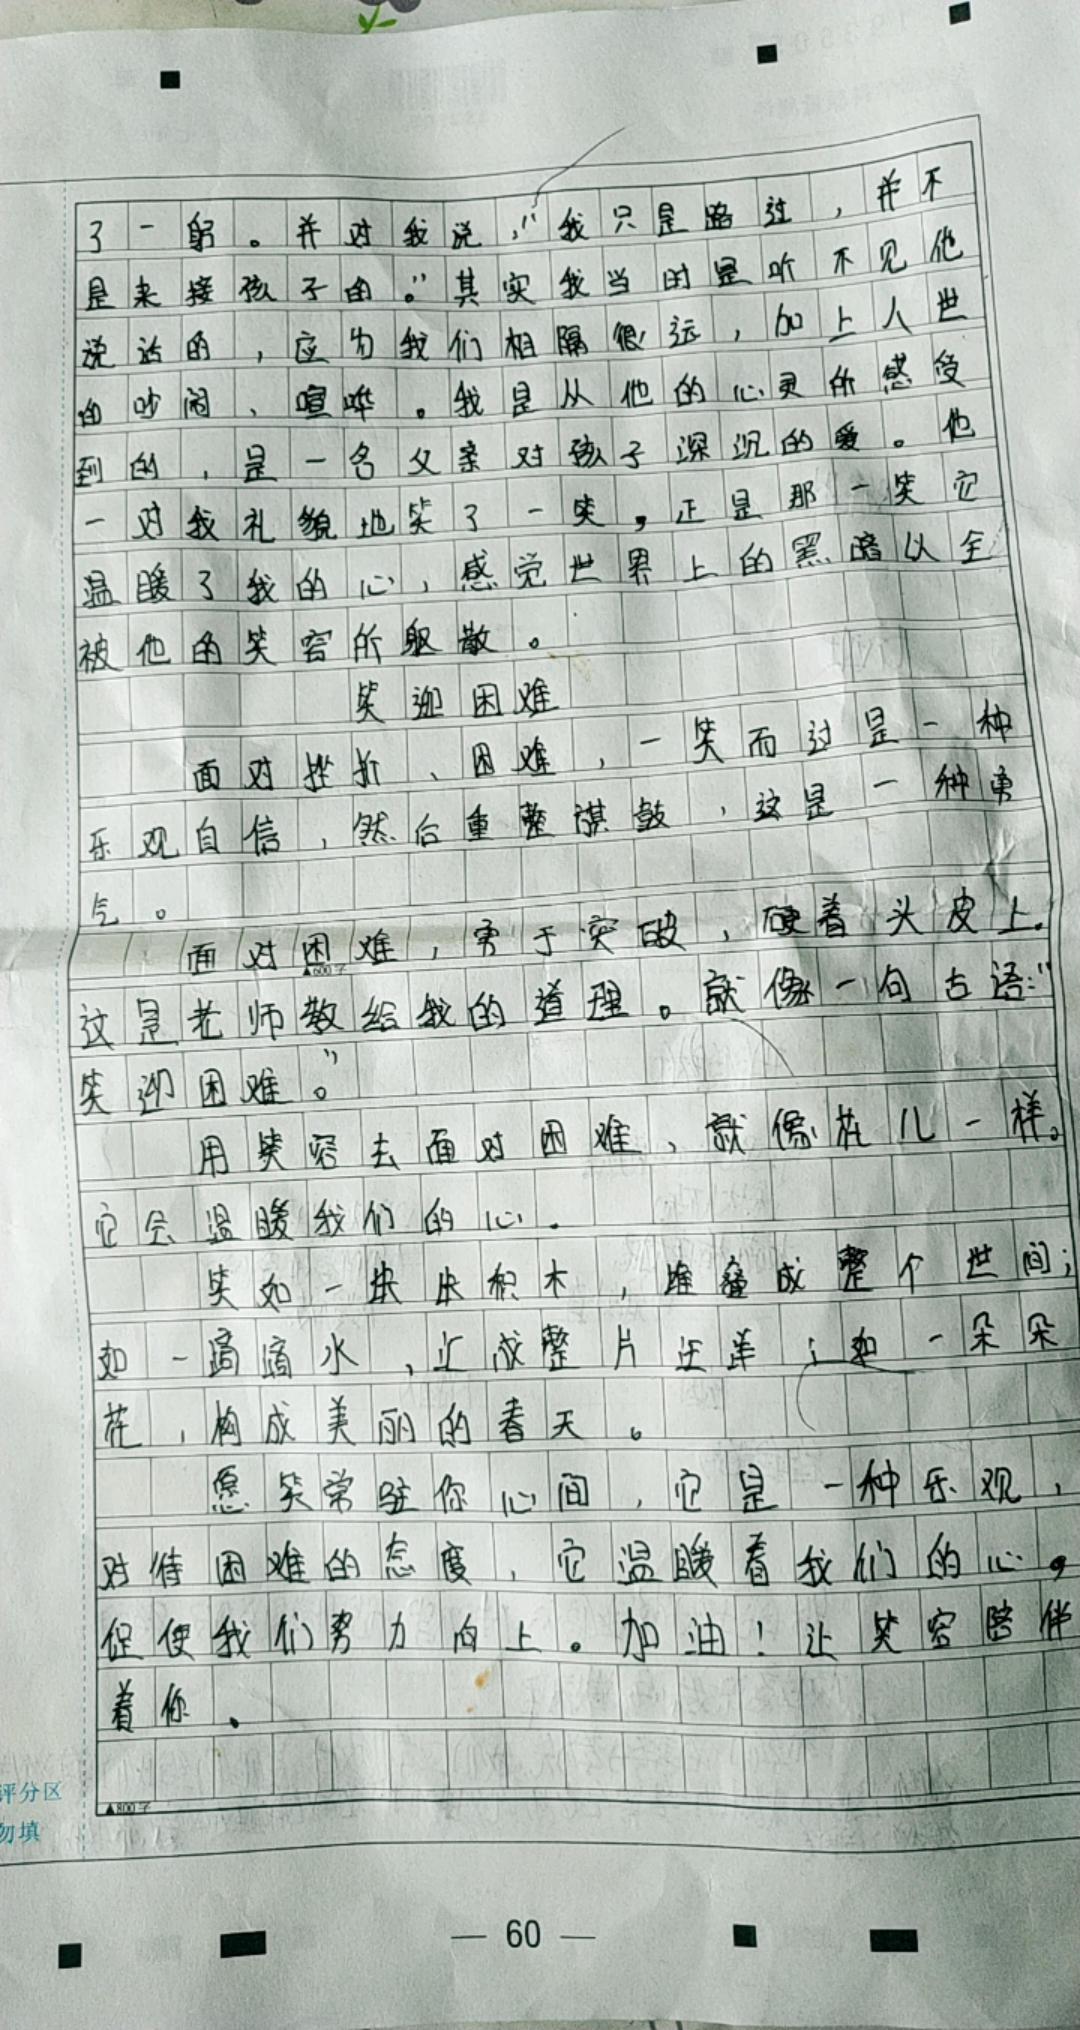 了一躬。并对我说,“我只是路过,并不
是来接孩子的。”其实我当时是听不见他
说话的,应为我们相隔很远,加上人世
的吵闹、喧哗。我是从他的心灵所感受
到的,是一名父亲对孩子深沉的爱。他
一对我礼貌地笑了一笑,正是那一笑它
温暖了我的心,感觉世界上的黑暗以全
被他的笑容所驱散。
笑迎困难
面对挫折、困难,一笑而过是一种
乐观自信,然后重整旗鼓,这是一种勇
气。
面对困难,勇于突破,硬着头皮上。
▲600字
这是老师教给我的道理。就像一句古语:“
笑迎困难。”
用笑容去面对困难,就像花儿一样。
它会温暖我们的心。
笑如一块块积木,堆叠成整个世间;
如一滴滴水,汇成整片汪洋;如一朵朵
花,构成美丽的春天。
愿笑常驻你心间,它是一种乐观,
对待困难的态度,它温暖着我们的心,
促使我们努力向上。加油!让笑容陪伴
着你。
▲800字
评分区
勿填
— 60 —